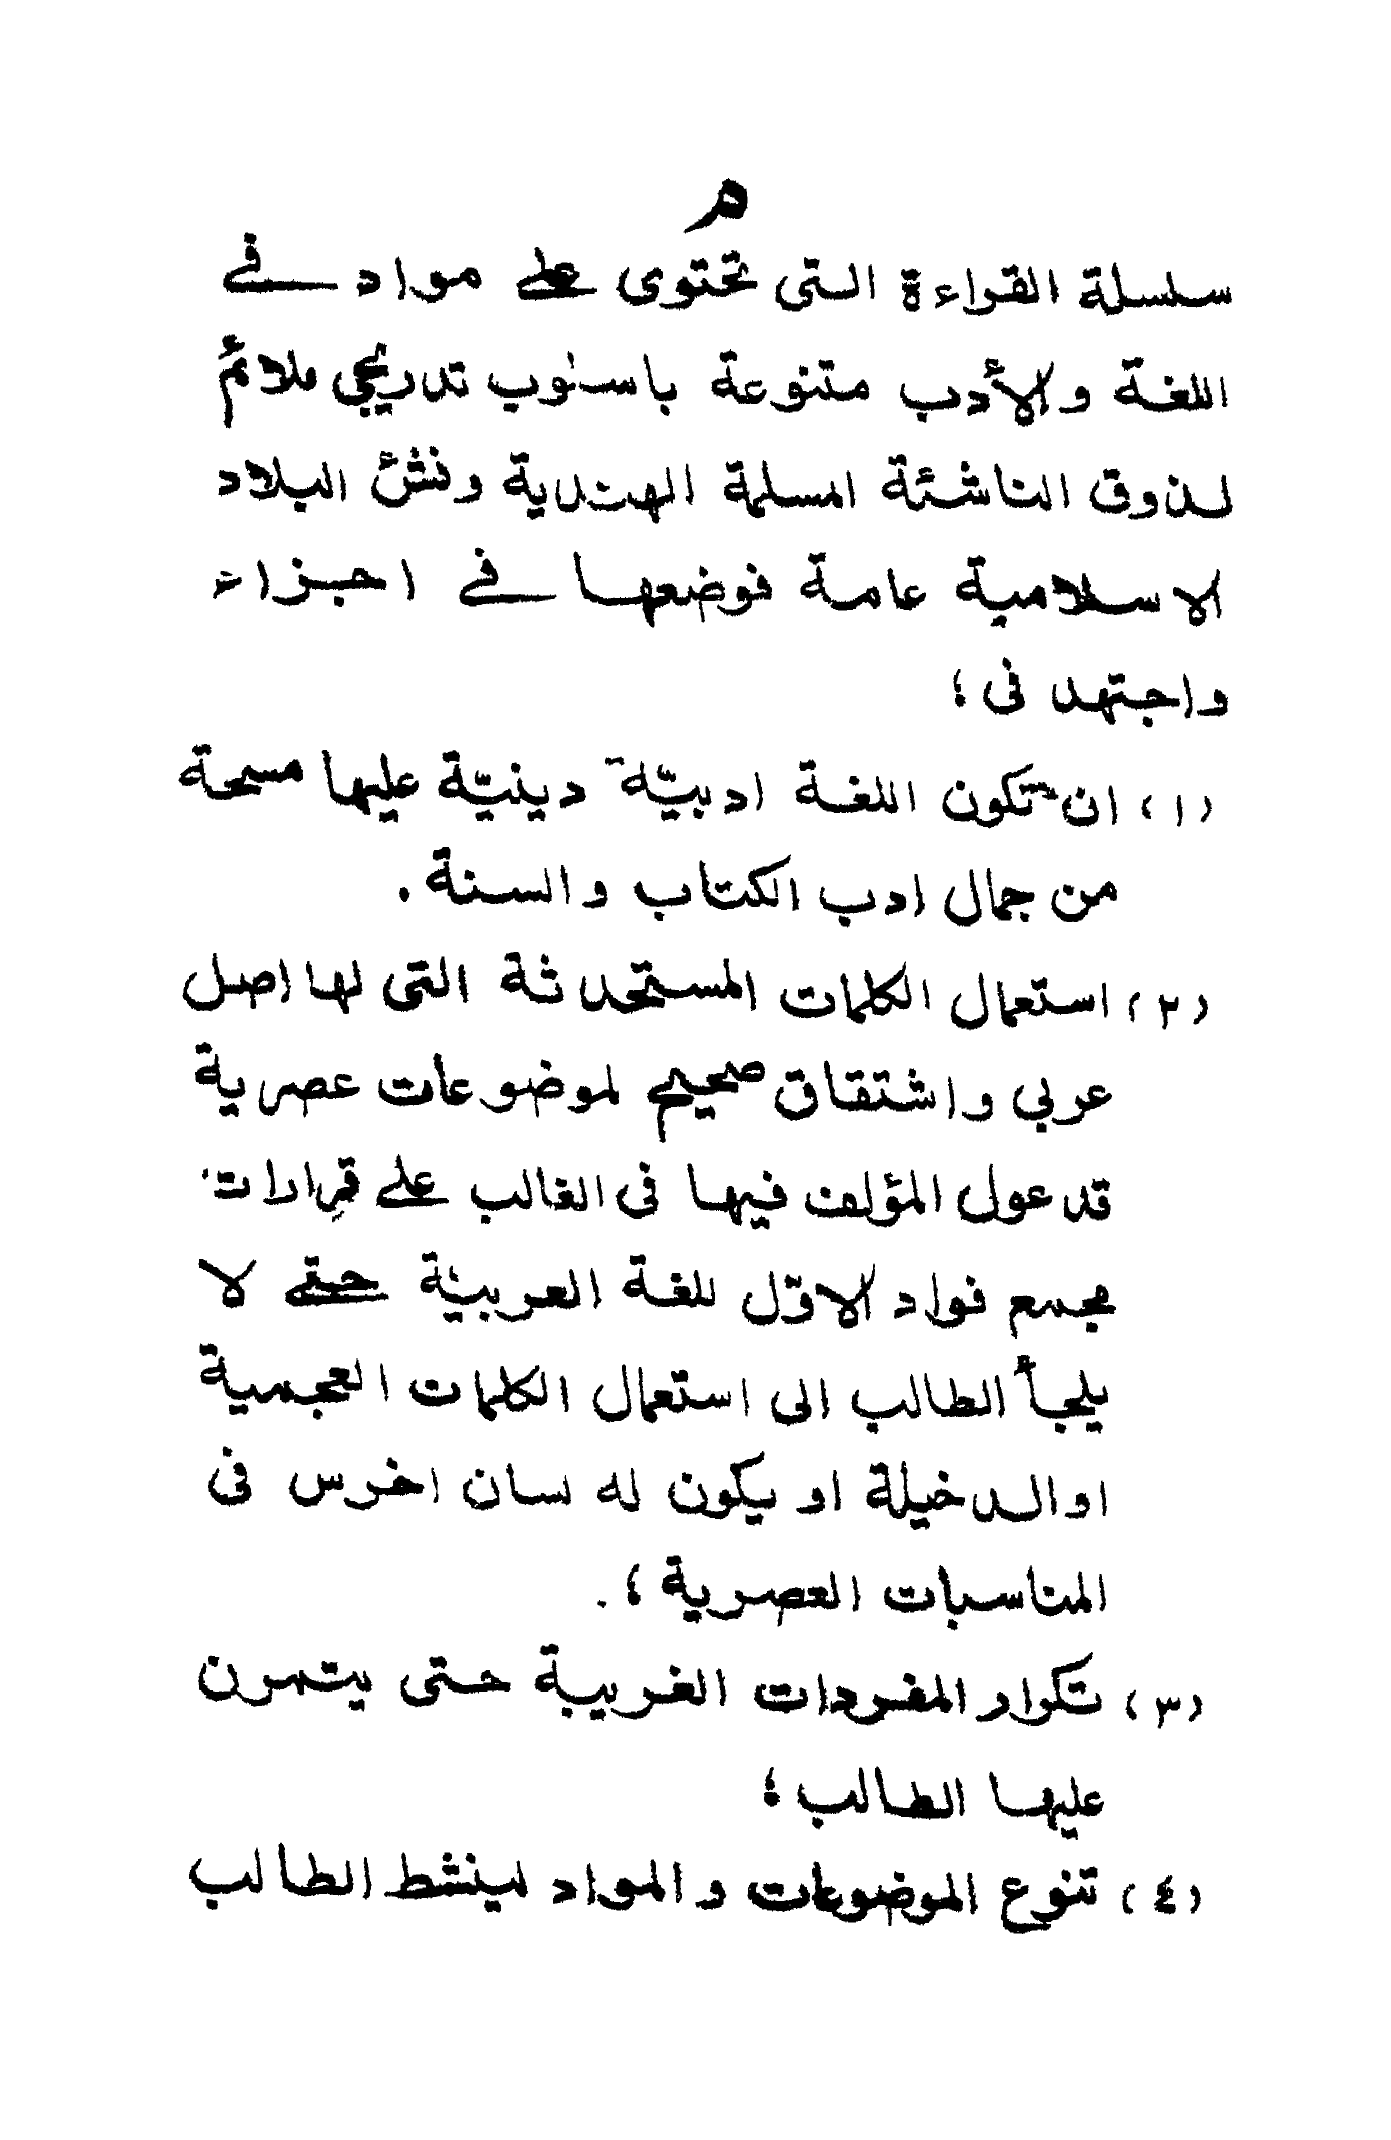 م
سلسلة القراءة التى تحتوى على مواد فى
اللغة والأدب متنوعة باسلوب تدريجي ملائم
لذوق الناشئة المسلمة الهندية ونشئ البلاد
الاسلامية عامة فوضعها فى اجزاء
واجتهد فى ؛
(١) ان تكون اللغة ادبيّة دينيّة عليها مسحة
من جمال ادب الكتاب والسنة .
(٢) استعمال الكلمات المستحدثة التى لها اصل
عربي واشتقاق صحيح لموضوعات عصرية
قد عول المؤلف فيها فى الغالب على قرارات
مجمع فواد الاوّل للغة العربيّة حتى لا
يلجأ الطالب الى استعمال الكلمات العجمية
او الدخيلة او يكون له لسان اخرس فى
المناسبات العصرية ؛ .
(٣) تكرار المفردات الغريبة حتى يتمرن
عليها الطالب ؛
(٤) تنوع الموضوعات والمواد لينشط الطالب